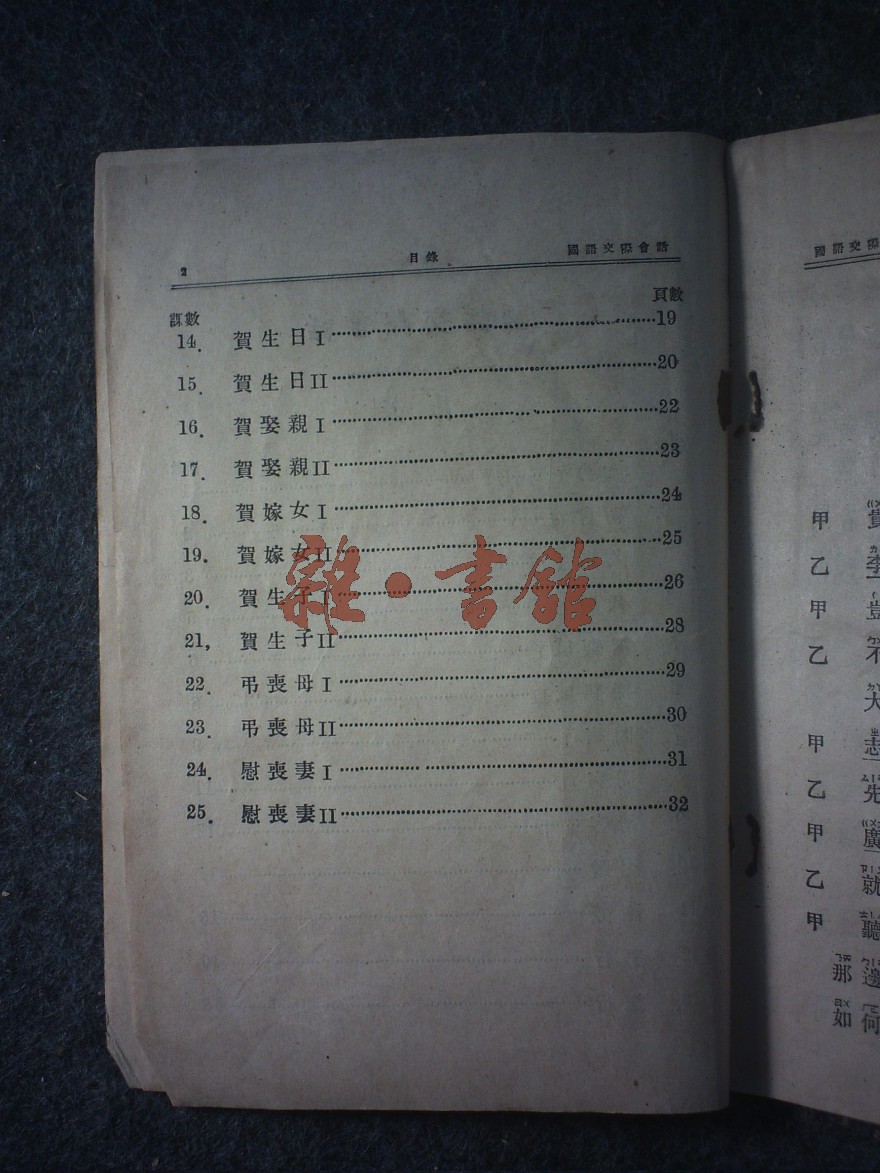 2 目錄 國語交際會話
課數 頁數
14. 賀生日 I 19
15. 賀生日 II 20
16. 賀娶親 I 22
17. 賀娶親 II 23
18. 賀嫁女 I 24
19. 賀嫁女 II 25
20. 賀生子 I 26
21, 賀生子 II 28
22. 弔喪母 I 29
23. 弔喪母 II 30
24. 慰喪妻 I 31
25. 慰喪妻 II 32
雜·書館
國語交際
甲 貴
乙 李
甲 豈
乙 不
大
甲 志
乙 先
甲 廣
乙 就
甲 聽
那邊
如何